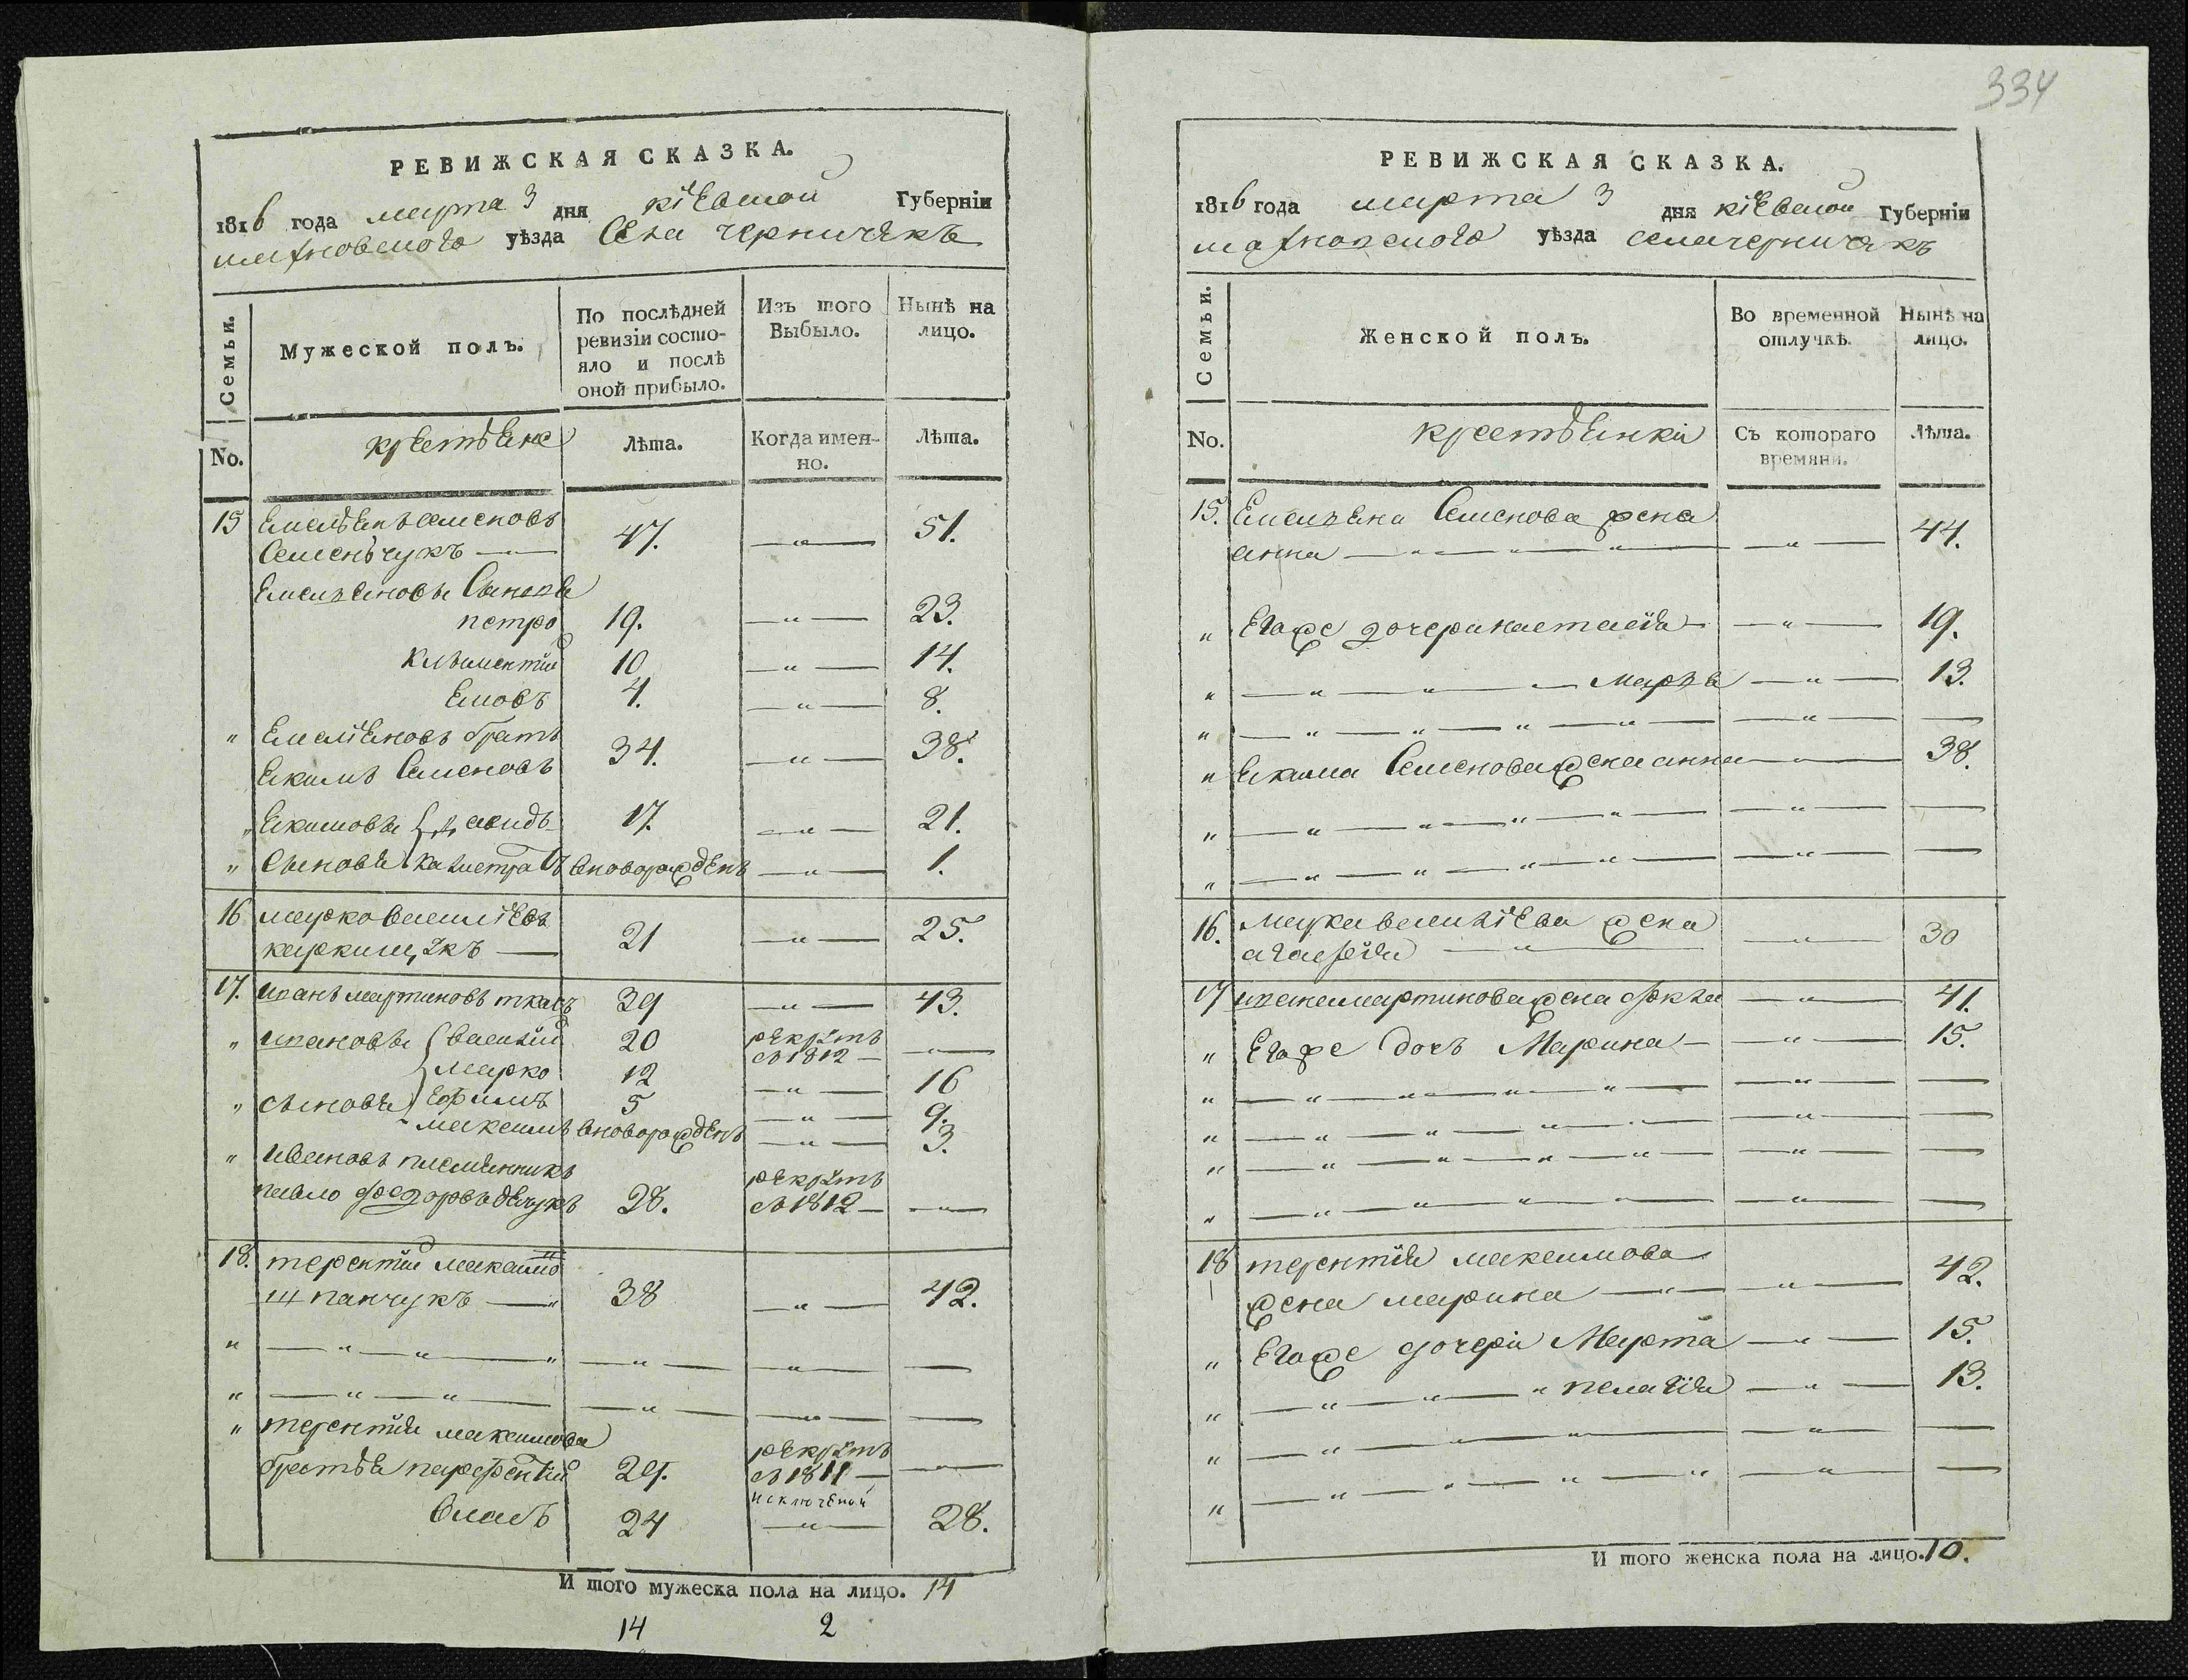 РЕВИЖСКАЯ СКАЗКА.
1816 года марта 3 дня кіевской Губерніи
махновского уѣзда Села черничакъ
Семьи.
Мужеской полъ.
По послѣдней ревизіи состояло и послѣ оной прибыло.
Изъ того Выбыло.
Нынѣ на лицо.
No.
Лѣта.
Когда именно.
Лѣта.
15 Емелъенъ семеновъ
Семенъчукъ — 47. — " — 51.
Емельяновы Сынове
петро 19. — " — 23.
Климентий 10 — " — 14.
4. — " — 8.
" Емелiеновъ братъ
Екимъ Семеновъ 34. — " — 38.
" Екимовы давидъ 17. — " — 21.
" Сыновя Калистратъ вноворожденъ — " — 1.
16 марко василiевъ
21 — " — 25.
17. иванъ мартиновъ ткачъ 39 — " — 43.
" ивановы василий 20 рекрутъ в 1812 — — " —
марко 12 — " — 16
" сыновя Ефимъ 5 — " — 9.
максимъ вноворожденъ — " — 3.
" ивановъ племянникъ
павло федоровъ 28. рекрутъ в 1812 — — " —
18. терентий максимо
панчукъ — " 38 — " — 42.
" — " — " — " — " — — " — —
" — " — " — — " — — " — —
" терентия максимова
братья парфентий 29. рекрутъ в 1811 — —
исключеной
власъ 24 — " — 28.
И того мужеска пола на лицо. 14
14 2
334
РЕВИЖСКАЯ СКАЗКА.
1816 года марта 3 дня кіевской Губерніи
махновского уѣзда села черничакъ
Семьи.
Женской полъ.
Во временной отлучкѣ.
Нынѣ на лицо.
No.
Съ котораго времяни.
Лѣта.
15. Емельяна Семенова жена
анна — " — " — " — — " — 44.
" Егоже дочери настасия — " — 19.
" — " — " — Маря — " — 13.
" — " — " — " — " — — " — —
" Екима Семенова жена анна — " — 38.
" — " — " — " — " — — " — —
" — " — " — " — " — — " — —
16. Марка василiева жена
агафия — " — — " — 30
17 ивана мартинова жена — " — 41.
" Егоже дочь Марина — — " — 15.
" — " — " — " — " — — " — —
" — " — " — " — " — — " — —
" — " — " — " — " — — " — —
" — " — " — " — " — — " — —
18 терентия максимова
жена марина — " — — " — 42.
" Егоже дочери Марта — " — 15.
" — " — " — " пелагия — " — 13.
" — " — " — " — " — — " — —
" — " — " — " — " — — " — —
И того женска пола на лицо. 10.